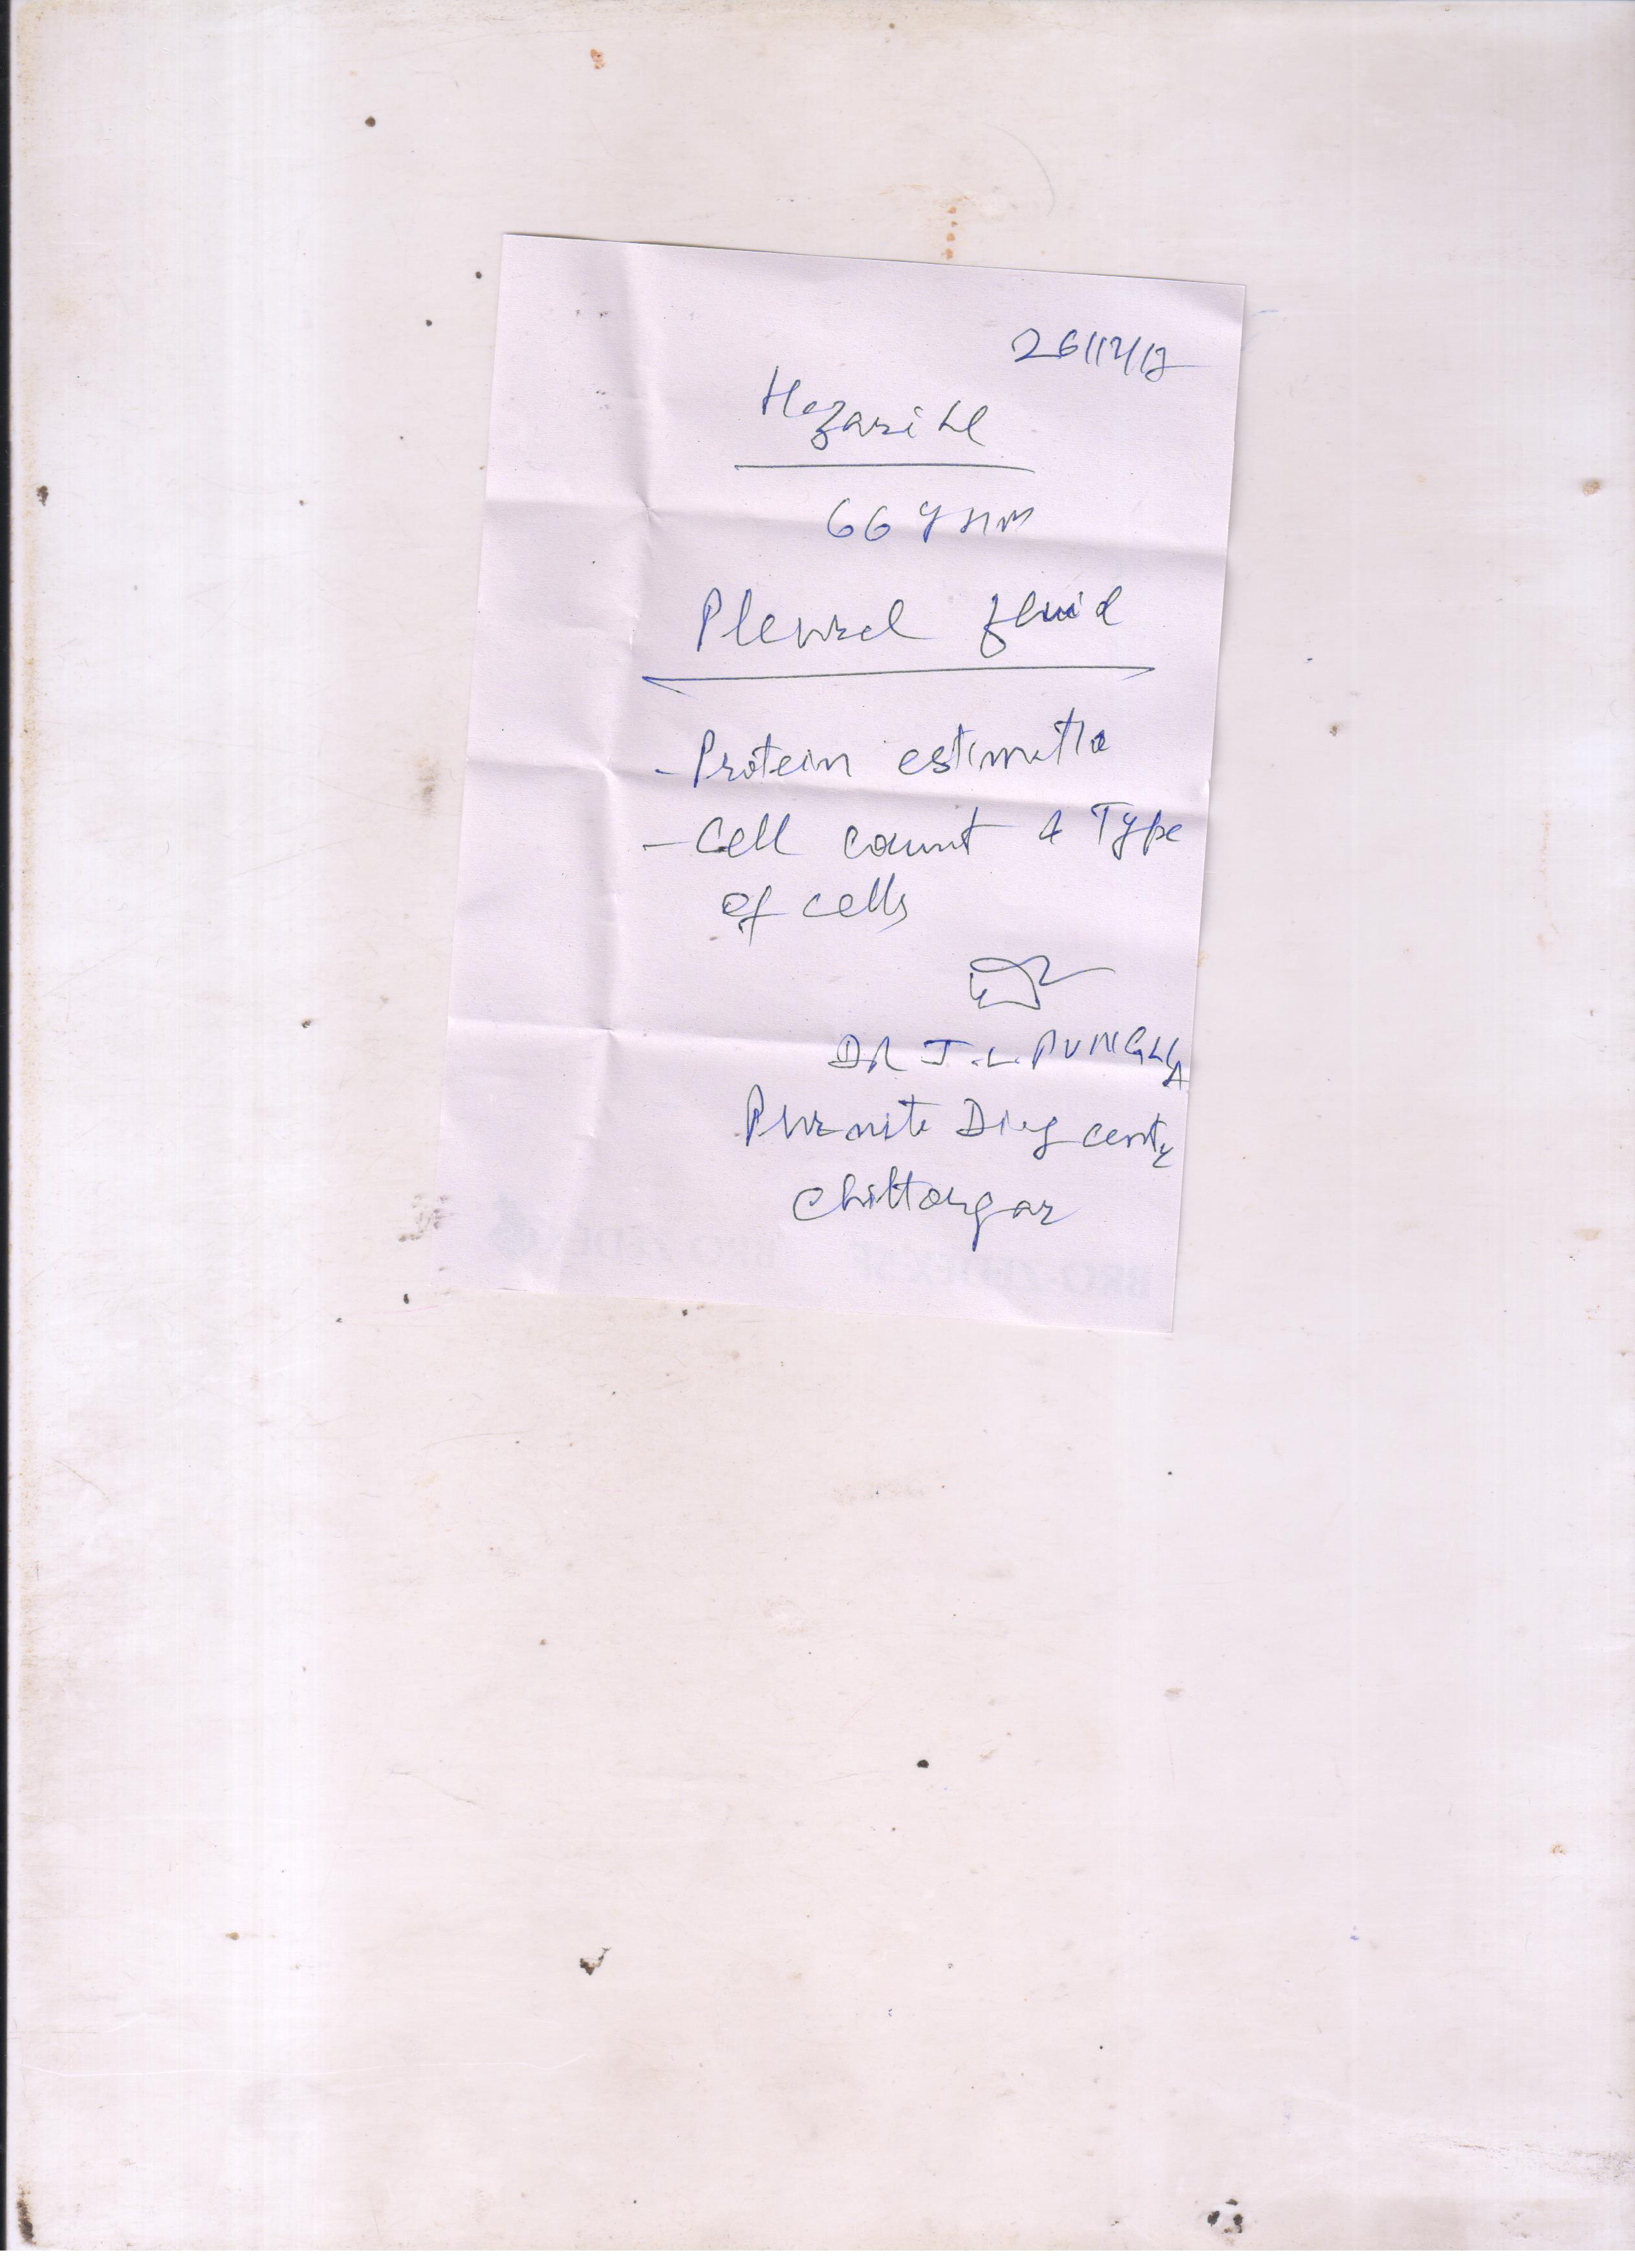 26/12/12
Hazari Lal
66 y
Pleural fluid
- Protein estimatio
- Cell count & Type
of cells
DR J.L. PUNGLIA
Diag cent
Chittorgar
BRO-ZEDEX SF
BRO-ZEDE